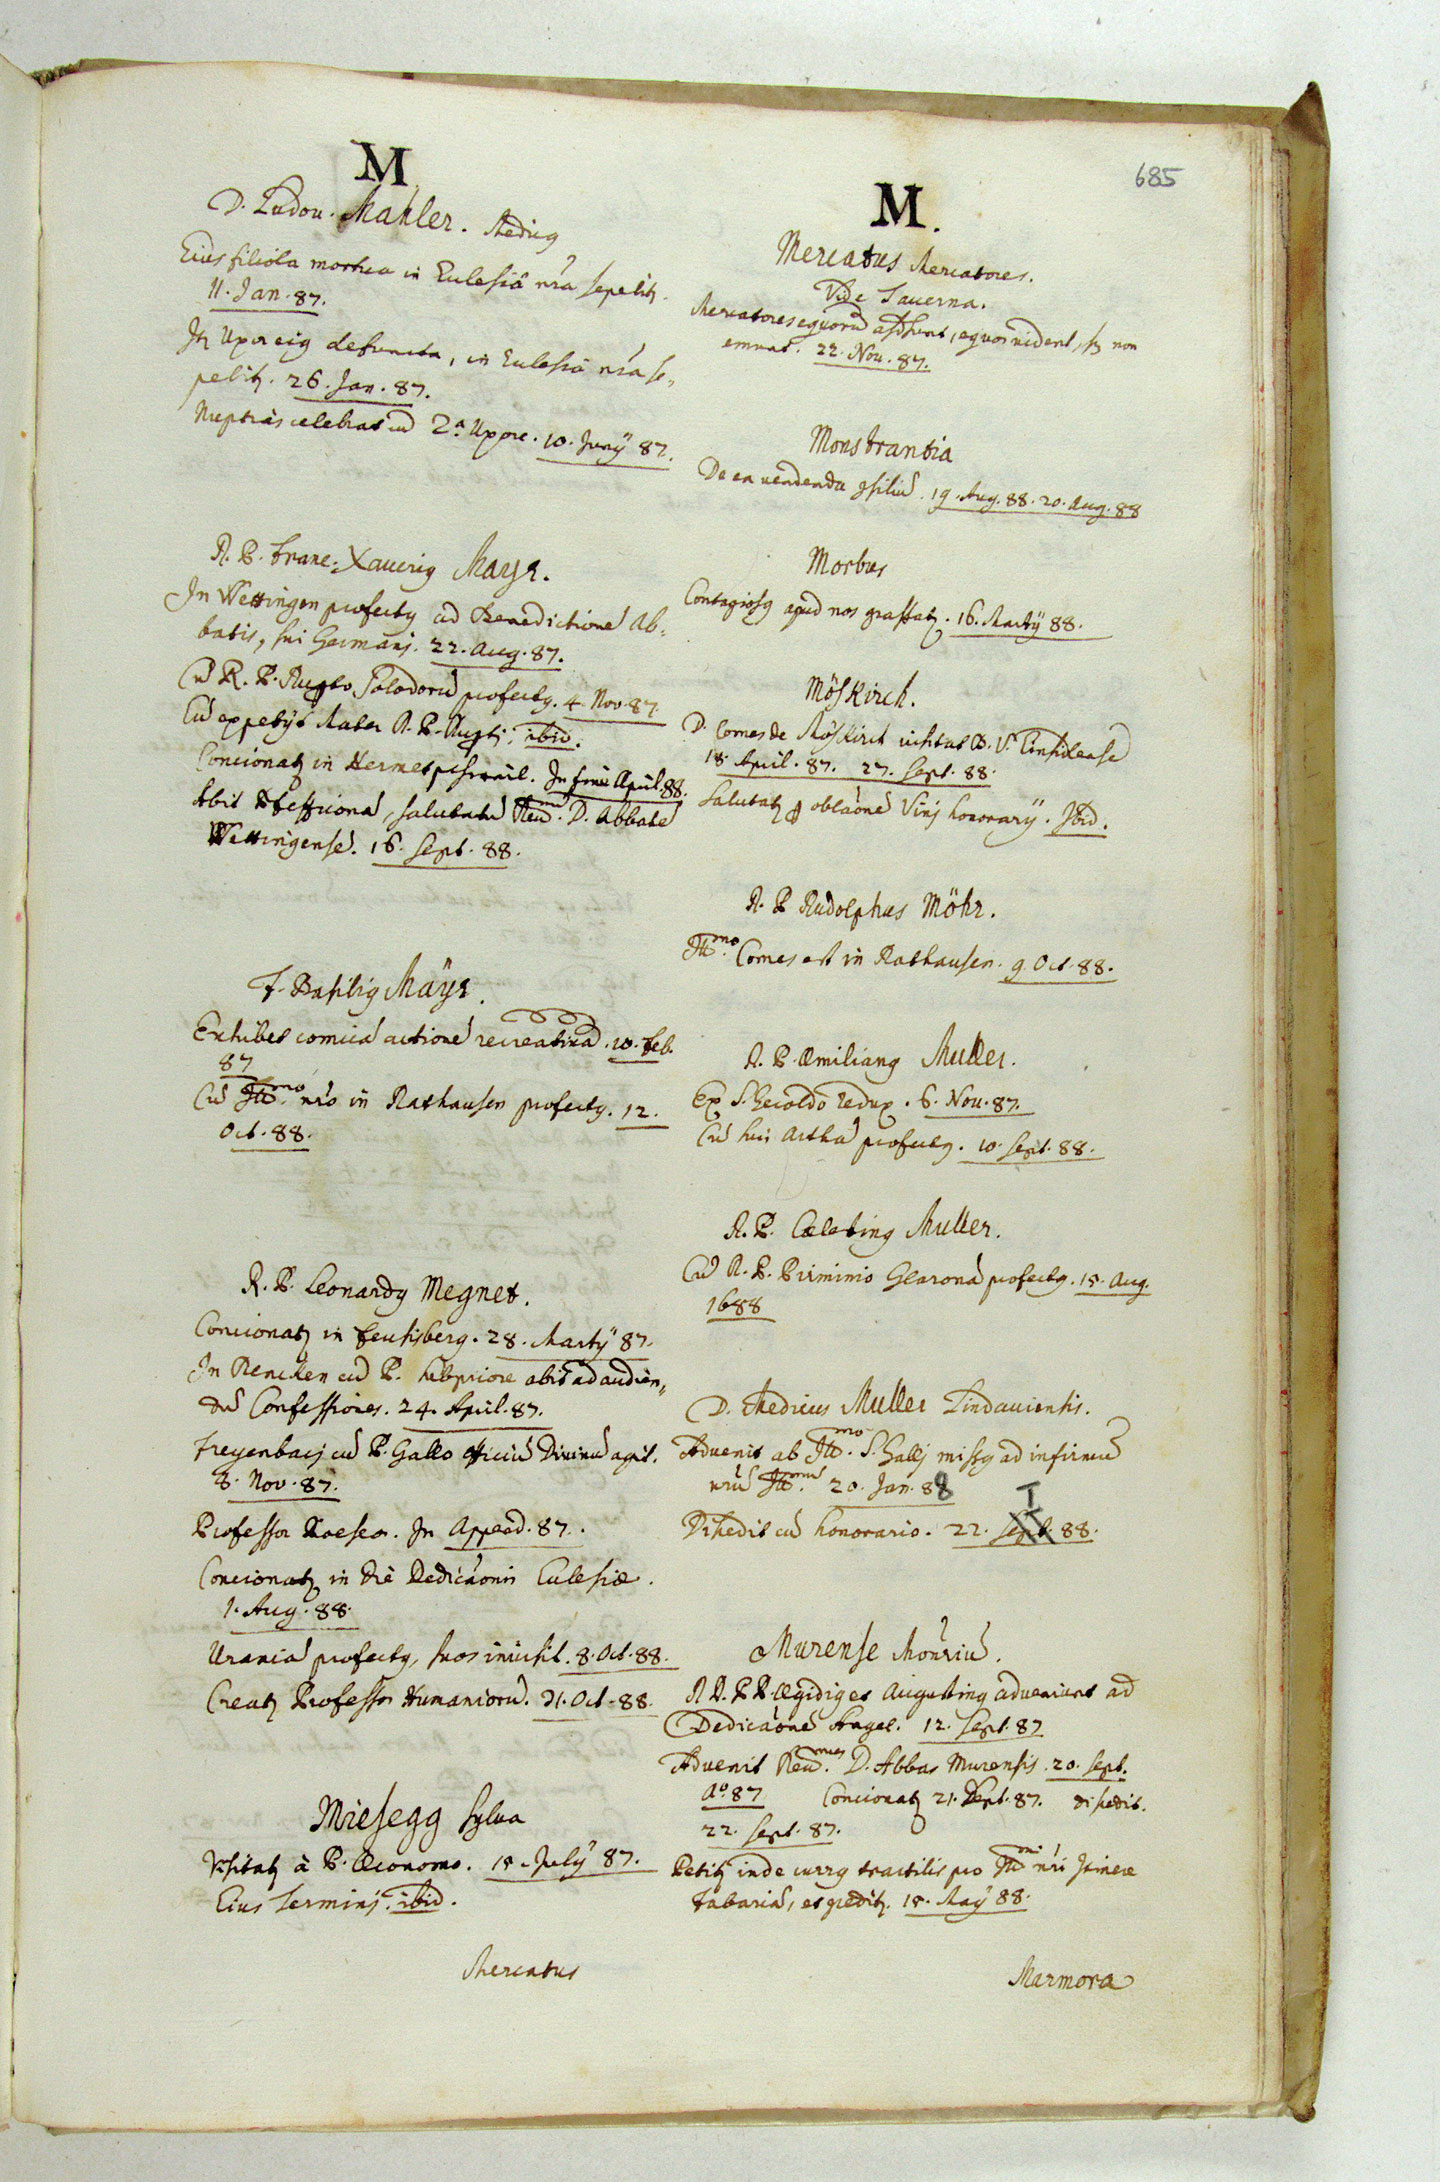 685
M
D. Ludou. Mahler. Medicus
Eius filiola mortua in Ecclesiâ nrâ sepelitr.
11. Jan. 87.
Itē Uxor eius defuncta, in Ecclesiâ nrâ se„
pelitr. 26. Jan. 87.
Nuptias celebrat cū 2.a Uxore. 10. Junÿ 87.
R. P. Franc: Xauerius Mayr.
In Wettingen profectus ad Benedictionē Ab„
batis, sui Germanj. 22. Aug. 87.
Cū R. P. Rupto Solodorū profectus. 4. Nov. 87.
Eū expetÿt Mater R. P. Ruptj. ibid.
Concionatr in Hermetschwil. In fine April. 88.
Abit Bessonā, salutatū Reu.mū D. Abbatē
Wettingensē. 16. Sept. 88.
F. Basilius Mäyr.
Exhibet comicā actionē recreatiuā. 10. Feb.
87
Cū Ill.mo nrō in Rathausen profectus. 12.
Oct. 88.
R. P. Leonardus Megnet.
Concionatr in Feusisberg. 28. Martÿ 87.
In Rencken cū P. Subpriore abit ad audien„
dū Confessiones. 24. April. 87.
Freyenbacj cū P. Gallo officiū Divinū agit.
8. Nov. 87.
Professor Rhetor. In Append. 87.
Concionatr in die Dedicāonis Ecclesiæ.
1. Aug. 88.
Uraniā profectus, suos inuisit. 8. Oct. 88.
Creatr Professor Humaniorū. 31. Oct. 88.
Miesegg Sylua
Visitatr à P. Œconomo. 18. Julÿ 87.
Eius Terminj. ibid.
Mercatus
M.
Mercatus Mercatores.
Vide Tauerna.
Mercatores equorū adsunt, equos vident, sz non
emunt. 22. Nov. 87.
Monstrantia
De ea uendenda gsiliū. 19. Aug. 88. 20. Aug. 88
Morbus
Contagiosus apud nos grassatr. 16. Martÿ 88.
Möskirch.
D. Comes de Möskirch visitat B. V. Einsidensē
18. April. 87. 27. Sept. 88.
Salutatr p oblāonē Vinj honorarÿ. Ibid.
R. P Rudolphus Möhr.
Ill.mo Comes est in Rathausen. 9. Oct. 88.
R. P. Æmilianus Muller.
Ex S. Geroldo redux. 6. Nov. 87.
Cū suis Arthā profectus. 10. Sept. 88.
R. P. Cælestinus Muller.
Cū R. P. Pirminio Glaronā profectus. 18. Aug.
1688
D. Medicus Muller Lindauiensis.
Aduenit ab Ill.mo S. Gallj missus ad infirmū
nrū Ill.mū 20. Jan. 88
I
Discedit cū honorario. 22. Sept. 88.
Murense Monriū.
R R. P P. Ægidius et Augustinus adueniunt ad
Dedicāonē Angel. 12. Sept. 87
Aduenit Reu.mus D. Abbas Murensis. 20. Sept.
Ao. 87 Concionatr 21. Sept. 87. discedit.
22. Sept. 87.
Petitr inde currus tractilis pro Ill.mi nri Itinere
Fabariā, et gceditr. 18. Maÿ 88.
Marmora